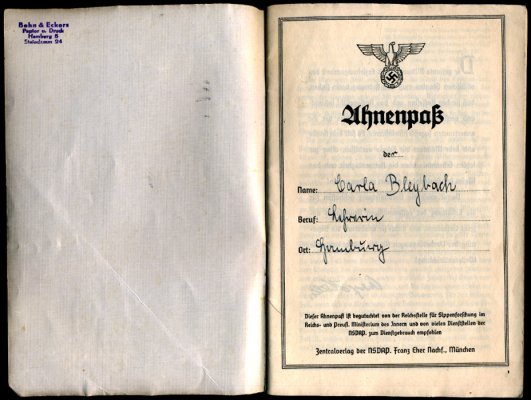 Bohn & Eckers
Papier u. Druck
Hamburg 5
Steindamm 24
Ahnenpaß
der
Name: Carla Bleybach
Beruf: Lehrerin
Ort: Hamburg
Dieser Ahnenpaß ist begutachtet von der Reichsstelle für Sippenforschung im
Reichs- und Preuß. Ministerium des Innern und von vielen Dienststellen der
NSDAP. zum Dienstgebrauch empfohlen
Zentralverlag der NSDAP. Franz Eher Nachf., München